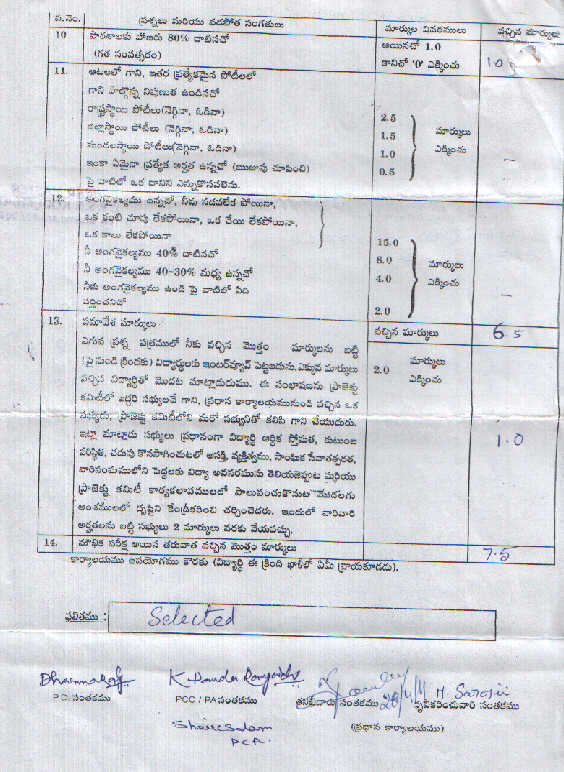 వ.నెం. ప్రశ్నలు మరియు వడపోత సంగతులు మార్కుల వివరములు వచ్చిన మార్కులు
10 పాఠశాలకు హాజరు 80% దాటినచో అయినచో 1.0
(గత సంవత్సరం) కానిచో '0' ఎక్కించు 1.0
11. ఆటలలో గాని, ఇతర ప్రత్యేకమైన పోటీలలో
గాని పాల్గొన్న నిపుణత ఉండినచో
రాష్ట్రస్థాయి పోటీలు(నెగ్గినా, ఓడినా) 2.5
జిల్లాస్థాయి పోటీలు (నెగ్గినా, ఓడినా) 1.5 మార్కులు
మండలస్థాయి పోటీలు(నెగ్గినా, ఓడినా) 1.0 ఎక్కించు
ఇంకా ఏమైనా ప్రత్యేక అర్హత ఉన్నచో (ఋజువు చూపించి) 0.5
పై వాటిలో ఒక దానిని ఎన్నుకొనవలెను.
12. అంగవైకల్యము ఉన్నచో, నీవు నడవలేక పోయినా,
ఒక కంటి చూపు లేకపోయినా, ఒక చేయి లేకపోయినా,
ఒక కాలు లేకపోయినా 15.0
నీ అంగవైకల్యము 40% దాటినచో 8.0 మార్కులు
నీ అంగవైకల్యము 40-30% మధ్య ఉన్నచో 4.0 ఎక్కించు
నీకు అంగవైకల్యము ఉండి పై వాటిలో ఏది
వర్తించనిచో 2.0
13. సమావేశ మార్కులు వచ్చిన మార్కులు 6.5
ఎగువ ప్రశ్న పత్రములో నీకు వచ్చిన మొత్తం మార్కులను బట్టి మార్కులు
(పై నుండి క్రిందకు) విద్యార్థులకు ఇంటర్వ్యూవ్ పెట్టబడును. ఎక్కువ మార్కులు 2.0 ఎక్కించు
వచ్చిన విద్యార్థితో మొదట మాట్లాడుదుము. ఈ సంభాషణను ప్రాజెక్టు
కమిటీలో ఇద్దరి సభ్యులచే గాని, ప్రధాన కార్యాలయమునుండి వచ్చిన ఒక
సభ్యుడు, ప్రాజెక్టు కమిటీలోని మరో సభ్యునితో కలిసి గాని చేయుదురు.
ఇట్లా మాట్లాడు సభ్యులు ప్రధానంగా విద్యార్థి ఆర్థిక స్తోమత, కుటుంబ 1.0
పరిస్థితి, చదువు కొనసాగించుటలో ఆసక్తి, వ్యక్తిత్వము, సాంఘిక సేవాతత్పరత,
వారిసంఘములోని పెద్దలకు విద్యా అవసరమును తెలియజెప్పుట మరియు
ప్రాజెక్టు కమిటీ కార్యకలాపములలో పాలుపంచుకొనుట మొదలగు
అంశములలో దృష్టిని కేంద్రీకరించి చర్చించెదరు. ఇందులో వారివారి
అర్హతలను బట్టి సభ్యులు 2 మార్కులు వరకు వేయవచ్చు.
14. మౌఖిక పరీక్ష అయిన తరువాత వచ్చిన మొత్తం మార్కులు 7.5
కార్యాలయము ఉపయోగము కొరకు (విద్యార్థి ఈ క్రింది ఖాళీలో ఏమీ వ్రాయకూడదు).
ఫలితము : Selected
P.D. సంతకము PCC / PA సంతకము తనిఖీదారు సంతకము ధృవీకరించువారి సంతకము
P.C.A. (ప్రధాన కార్యాలయము)